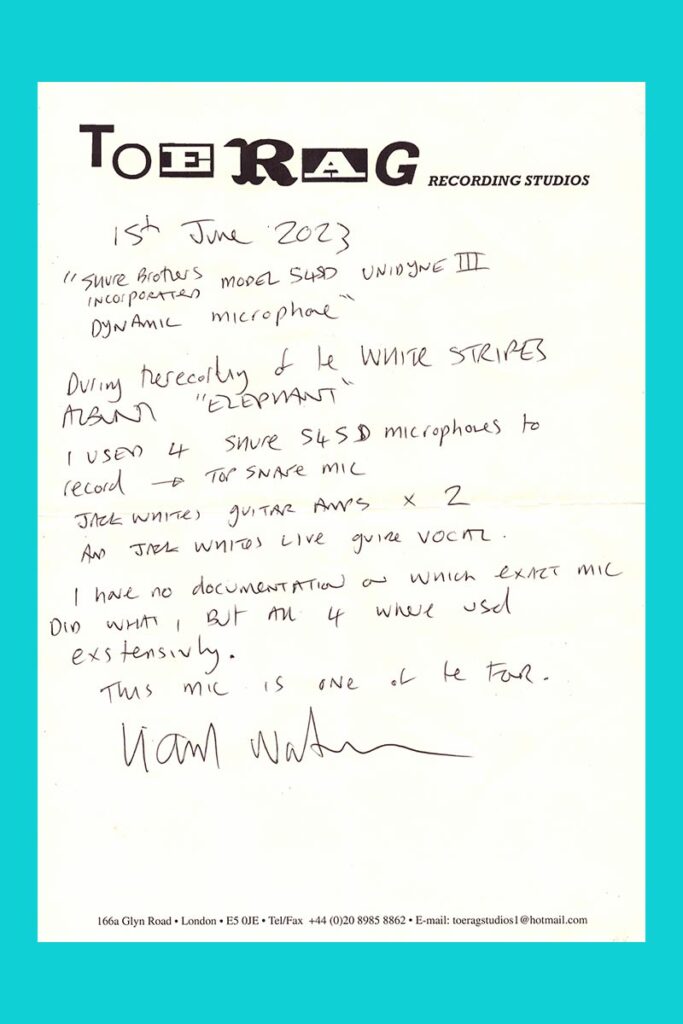 TOE RAG RECORDING STUDIOS
15th June 2023
"Shure Brothers
INCORPORATED MODEL 545D UNIDYNE III
DYNAMIC microphone"
During the recording of the WHITE STRIPES
ALBUM "ELEPHANT"
I USED 4 SHURE 545D microphones to
record → TOP SNARE MIC
JACK WHITES GUITAR AMPS X 2
AND JACK WHITES LIVE guide VOCAL.
I have no documentation on which exact mic
DID WHAT, BUT All 4 where used
exstensivly.
This mic is one of the Four.
Liam Watson
166a Glyn Road • London • E5 0JE • Tel/Fax +44 (0)20 8985 8862 • E-mail: toeragstudios1@hotmail.com